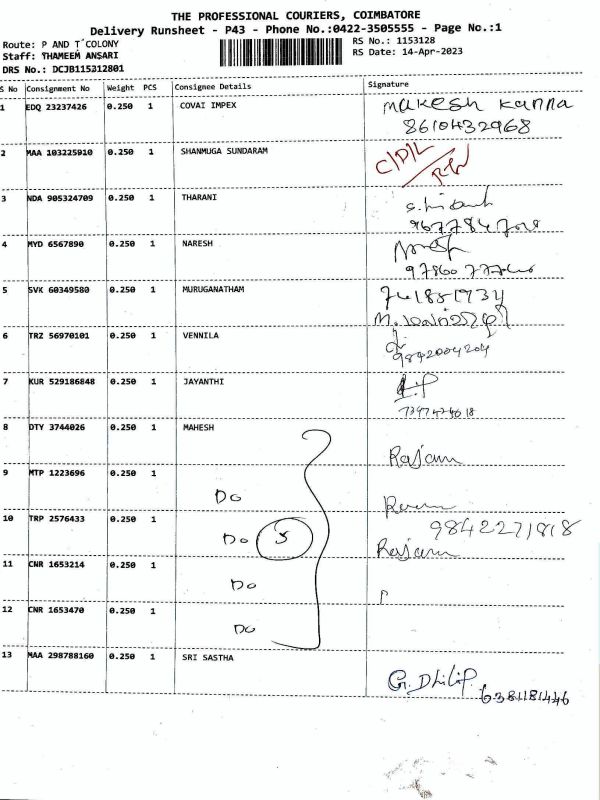 THE PROFESSIONAL COURIERS, COIMBATORE
Delivery Runsheet - P43 - Phone No.:0422-3505555 - Page No.:1
Route: P AND T COLONY
RS No.: 1153128
Staff: THAMEEM ANSARI
RS Date: 14-Apr-2023
DRS No.: DCJB115312801
S No Consignment No Weight PCS Consignee Details Signature
1 EDQ 23237426 0.250 1 COVAI IMPEX Mukesh Kanna
8610432968
2 MAA 103225910 0.250 1 SHANMUGA SUNDARAM C/D/L
3 NDA 905324709 0.250 1 THARANI
4 MYD 6567890 0.250 1 NARESH
5 SVK 60349580 0.250 1 MURUGANATHAM
6 TRZ 56970101 0.250 1 VENNILA
9842004204
7 KUR 529186848 0.250 1 JAYANTHI
8 DTY 3744026 0.250 1 MAHESH Rajam
9 MTP 1223696 0.250 1 Do
10 TRP 2576433 0.250 1 Do 5 9842271818
Rajam
11 CNR 1653214 0.250 1 Do
12 CNR 1653470 0.250 1 Do
13 MAA 298788160 0.250 1 SRI SASTHA G. Dhilip.
6381181446